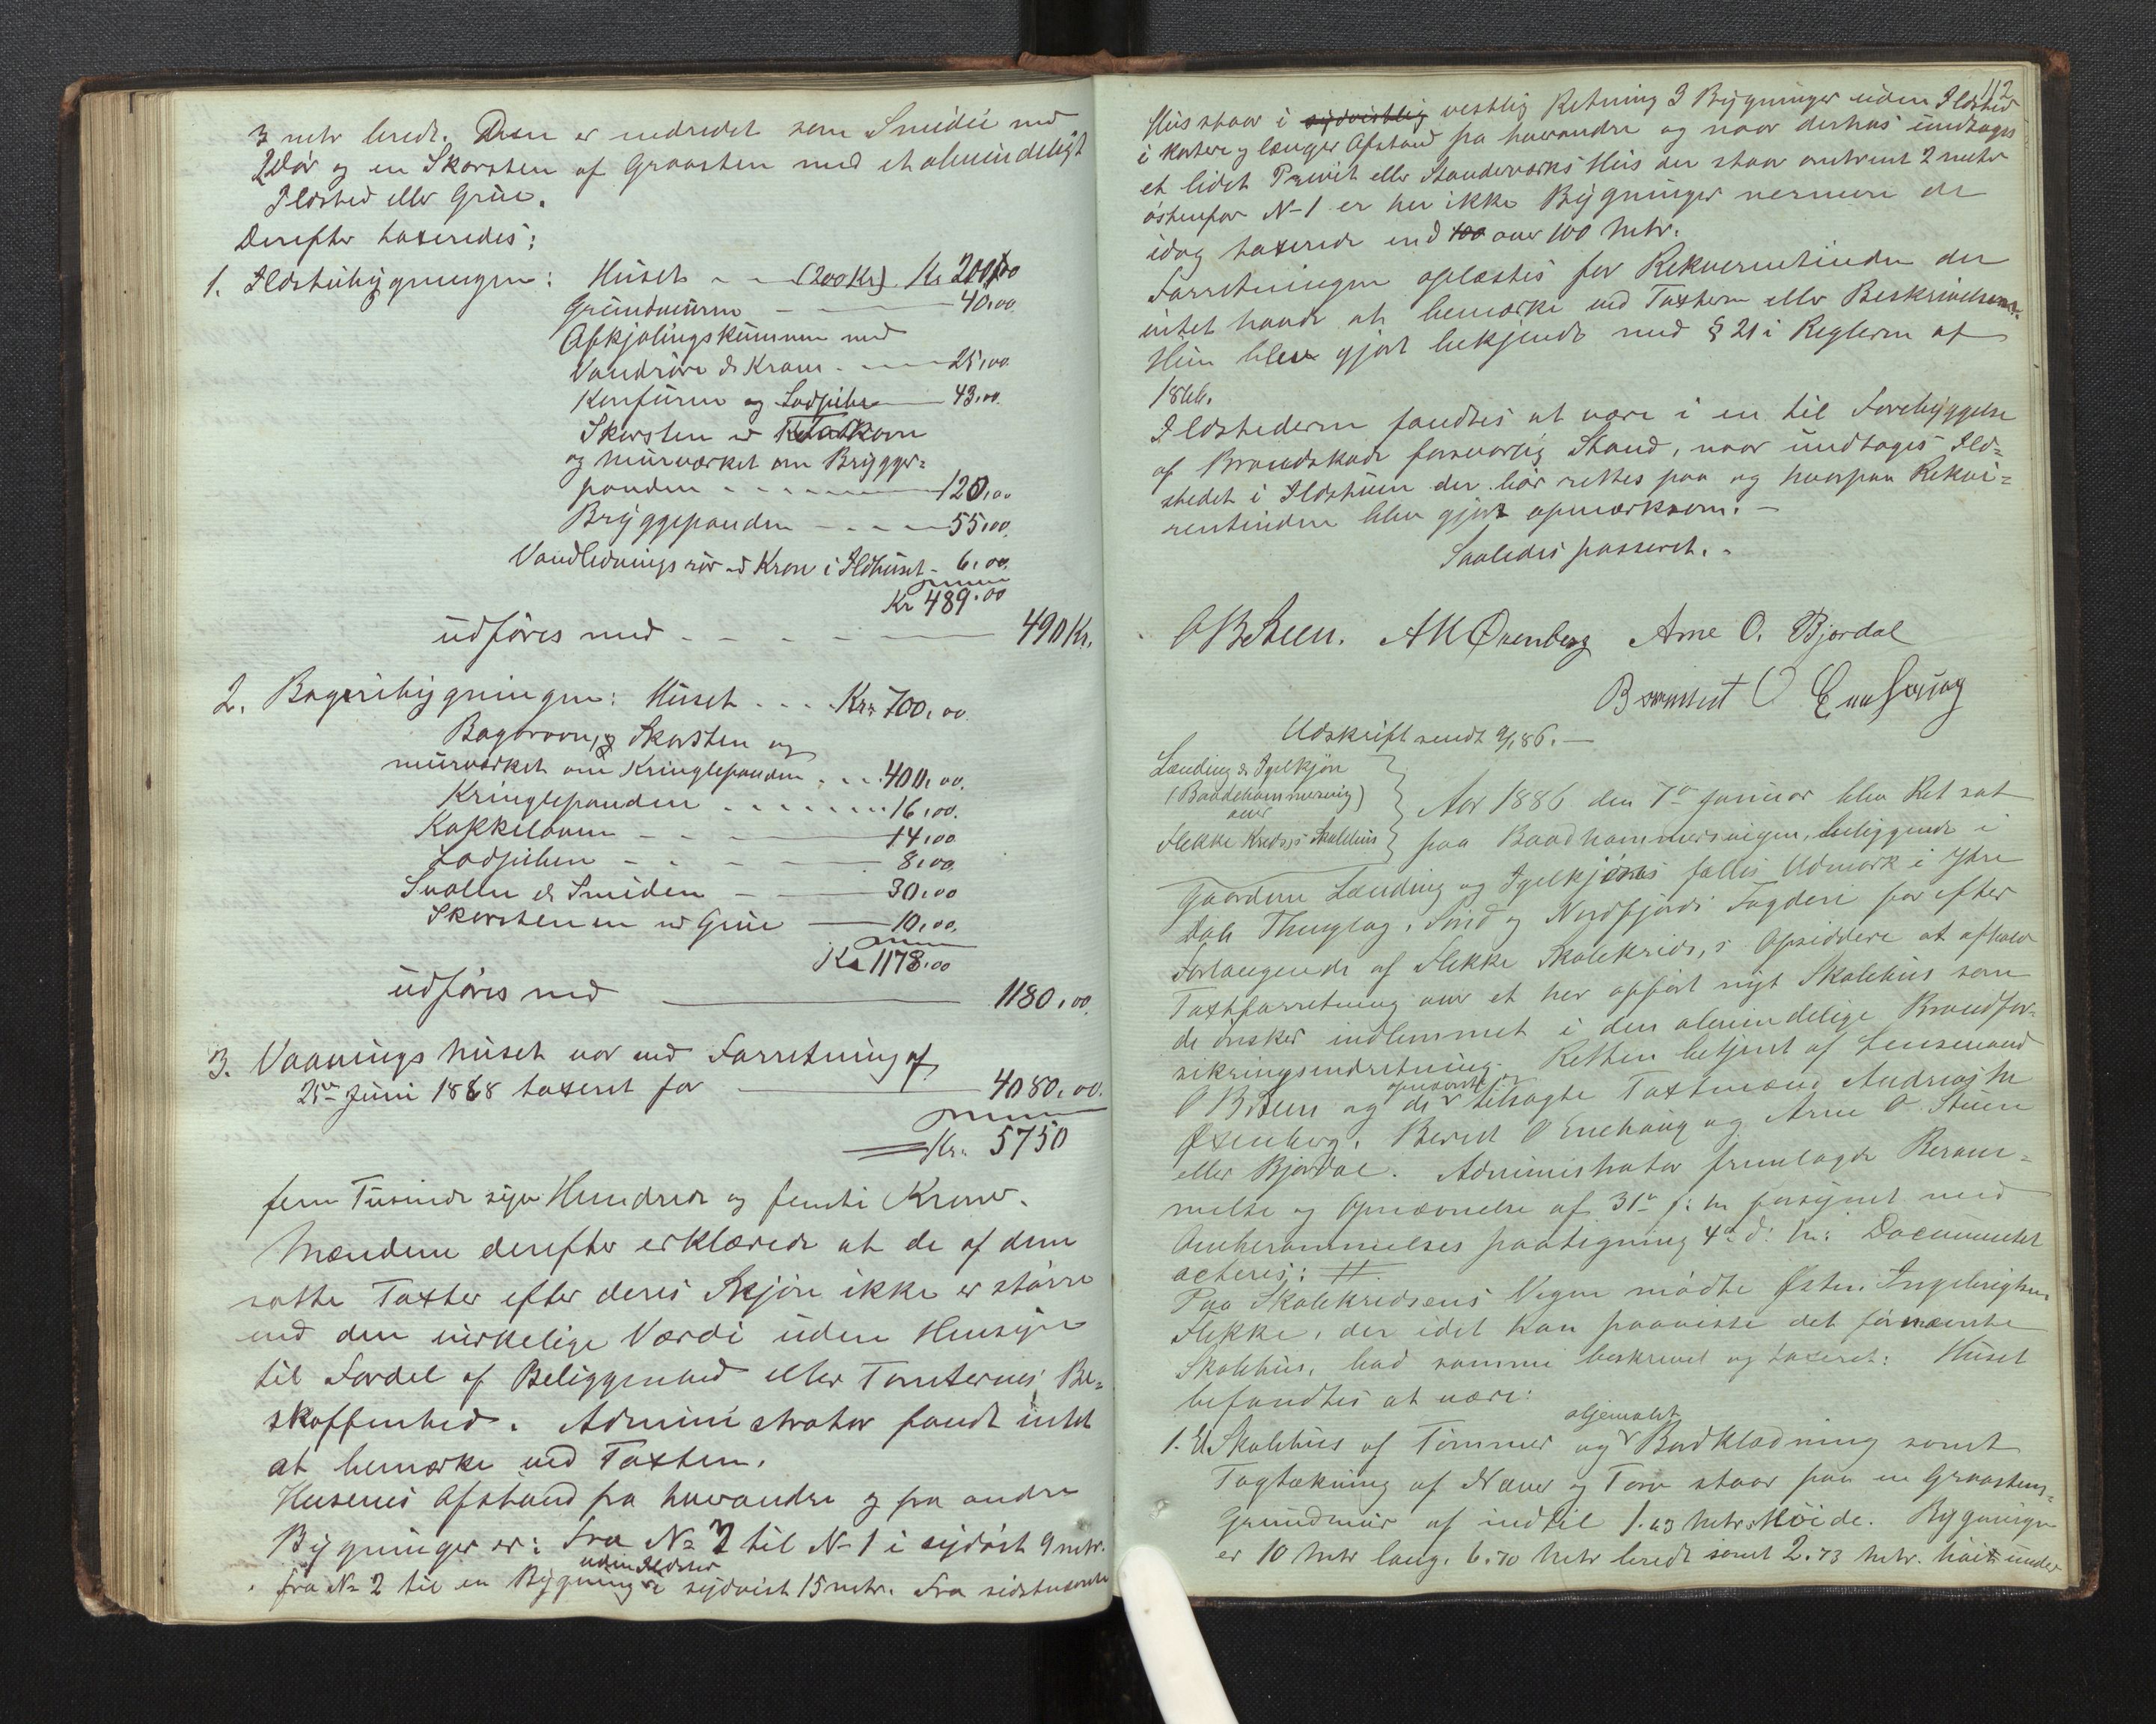 3 mtr bredt. Den er indredet som Smidie med
2 Dør og en Skorsten af Graasten med et almindeligt
Ildsted eller Grue.
Derefter taxeredes:
1. Ildstubygningen: Huset - - (200 Kr). Kr. 200,00
Grundmuren - - 40,00.
Afkjølingskummen med
Vandrøre & Kran - - 25,00.
Komfuren og Ladpiben - 43,00.
Skorsten &
og Murværket om Brygge=
panden - - - - 120,00
Bryggepanden - - - - 55,00.
Vandledningsrør & Kran i Ildhuset - 6,00.
Kr 489.00
udføres med - - - - 490 Kr.
2. Bageribygningen: Huset . . . Kr. 700,00.
Bagerovn, & Skorsten og
murværket om Kringlepanden . . . 400,00.
Kringlepanden . . . . . . . 16,00.
Kakkelovnen - - - 14,00
Ladpiben - - - 8,00.
Svalen & Smiden - - 30,00
Skorstenen & Grue - 10,00.
Kr 1178.00
udføres med - 1180,00.
3. Vaaningshuset var ved Forretning af
25de Juni 1868 taxeret for - 4080,00.
Kr. 5750
fem Tusinde syv Hundrede og femti Kroner.
Mændene derefter erklærede at de af dem
satte Taxter efter deres Skjøn ikke er større
end den virkelige Værdi uden Hensyn
til Fordel af Beliggenhed eller Tomternes Be=
skaffenhed. Administrator fandt intet
at bemærke ved Taxten.
Husenes Afstand fra hverandre og fra andre
Bygninger er: Fra No 2 til No 1 i sydøst 9 mtr.
uden Ildsted
fra No 2 til en Bygning i sydvest 15 mtr. Fra sidstnævnte
112
Hus staar i sydvestlig vestlig Retning 3 Bygninger uden Ildsted
i kortere og længere Afstand fra hverandre og naar derhos undtages
et lidet Privit eller Standværks Hus der staar omtrent 2 meter
østenfor No 1 er her ikke Bygninger nærmere de
idag taxerede end 100 over 100 Mtr.
Forretningen oplæstes for Rekvirentinden der
intet havde at bemærke ved Taxterne eller Beskrivelsen.
Hun blev gjort bekjendt med § 21 i Reglerne af
1866.
Ildstederne fandtes at være i en til Forebyggelse
af Brandskade forsvarlig Stand, naar undtages Ild=
stedet i Ildstuen der bør rettes paa og hvorpaa Rekvi=
rentinden blev gjort opmærksom. -
Saaledes passeret. -
O B Steen. A M Øxenberg Arne O. Bjordal
O Enehaug
Udskrift sendt 9/1 86. -
Lænding & Igelkjøn
(Baadehammervig)
over
Flekke Kreds,s Skolehus
Aar 1886 den 7de Januar blev Ret sat
paa Baadhammersvigen, beliggende i
Gaardene Lænding og Igelkjøns fælles Udmark i Ytre
Dale Thinglag, Sønd og Nordfjords Fogderi for efter
Forlangende af Flekke Skolekreds,s Opsiddere at afholde
Taxtforretning over et her opført nyt Skolehus som
de ønsker indlemmet i den almindelige Brandfor=
sikringsindretning. Retten betjent af Lensmand
opnævnte
O B Steen og de tilsagte Taxtmænd Andreas M
Øxenberg, Bernt O Enehaug og Arne O Steen
eller Bjordal. Administrator fremlagde Beram=
melse og Opnævnelse af 31te f: M forsynet med
Omberammelses paategning 4de d: M: Documentet
acteres: H.
Paa Skolekredsens Vegne mødte Østen Ingebrigtsen
Flekke, der idet han paaviste det førnævnte
Skolehus, bad samme beskrevet og taxeret: Huset
befandtes at være:
oljemalet
1. Et Skolehus af Tømmer og Bordklædning samt
Tagtækning af Næver og Torv staar paa en Graastens=
Grundmur af indtil 1.63 Mtrs Høide. Bygningen
er 10 Mtr lang, 6.70 Mtr bredt samt 2.73 Mtr. høit under